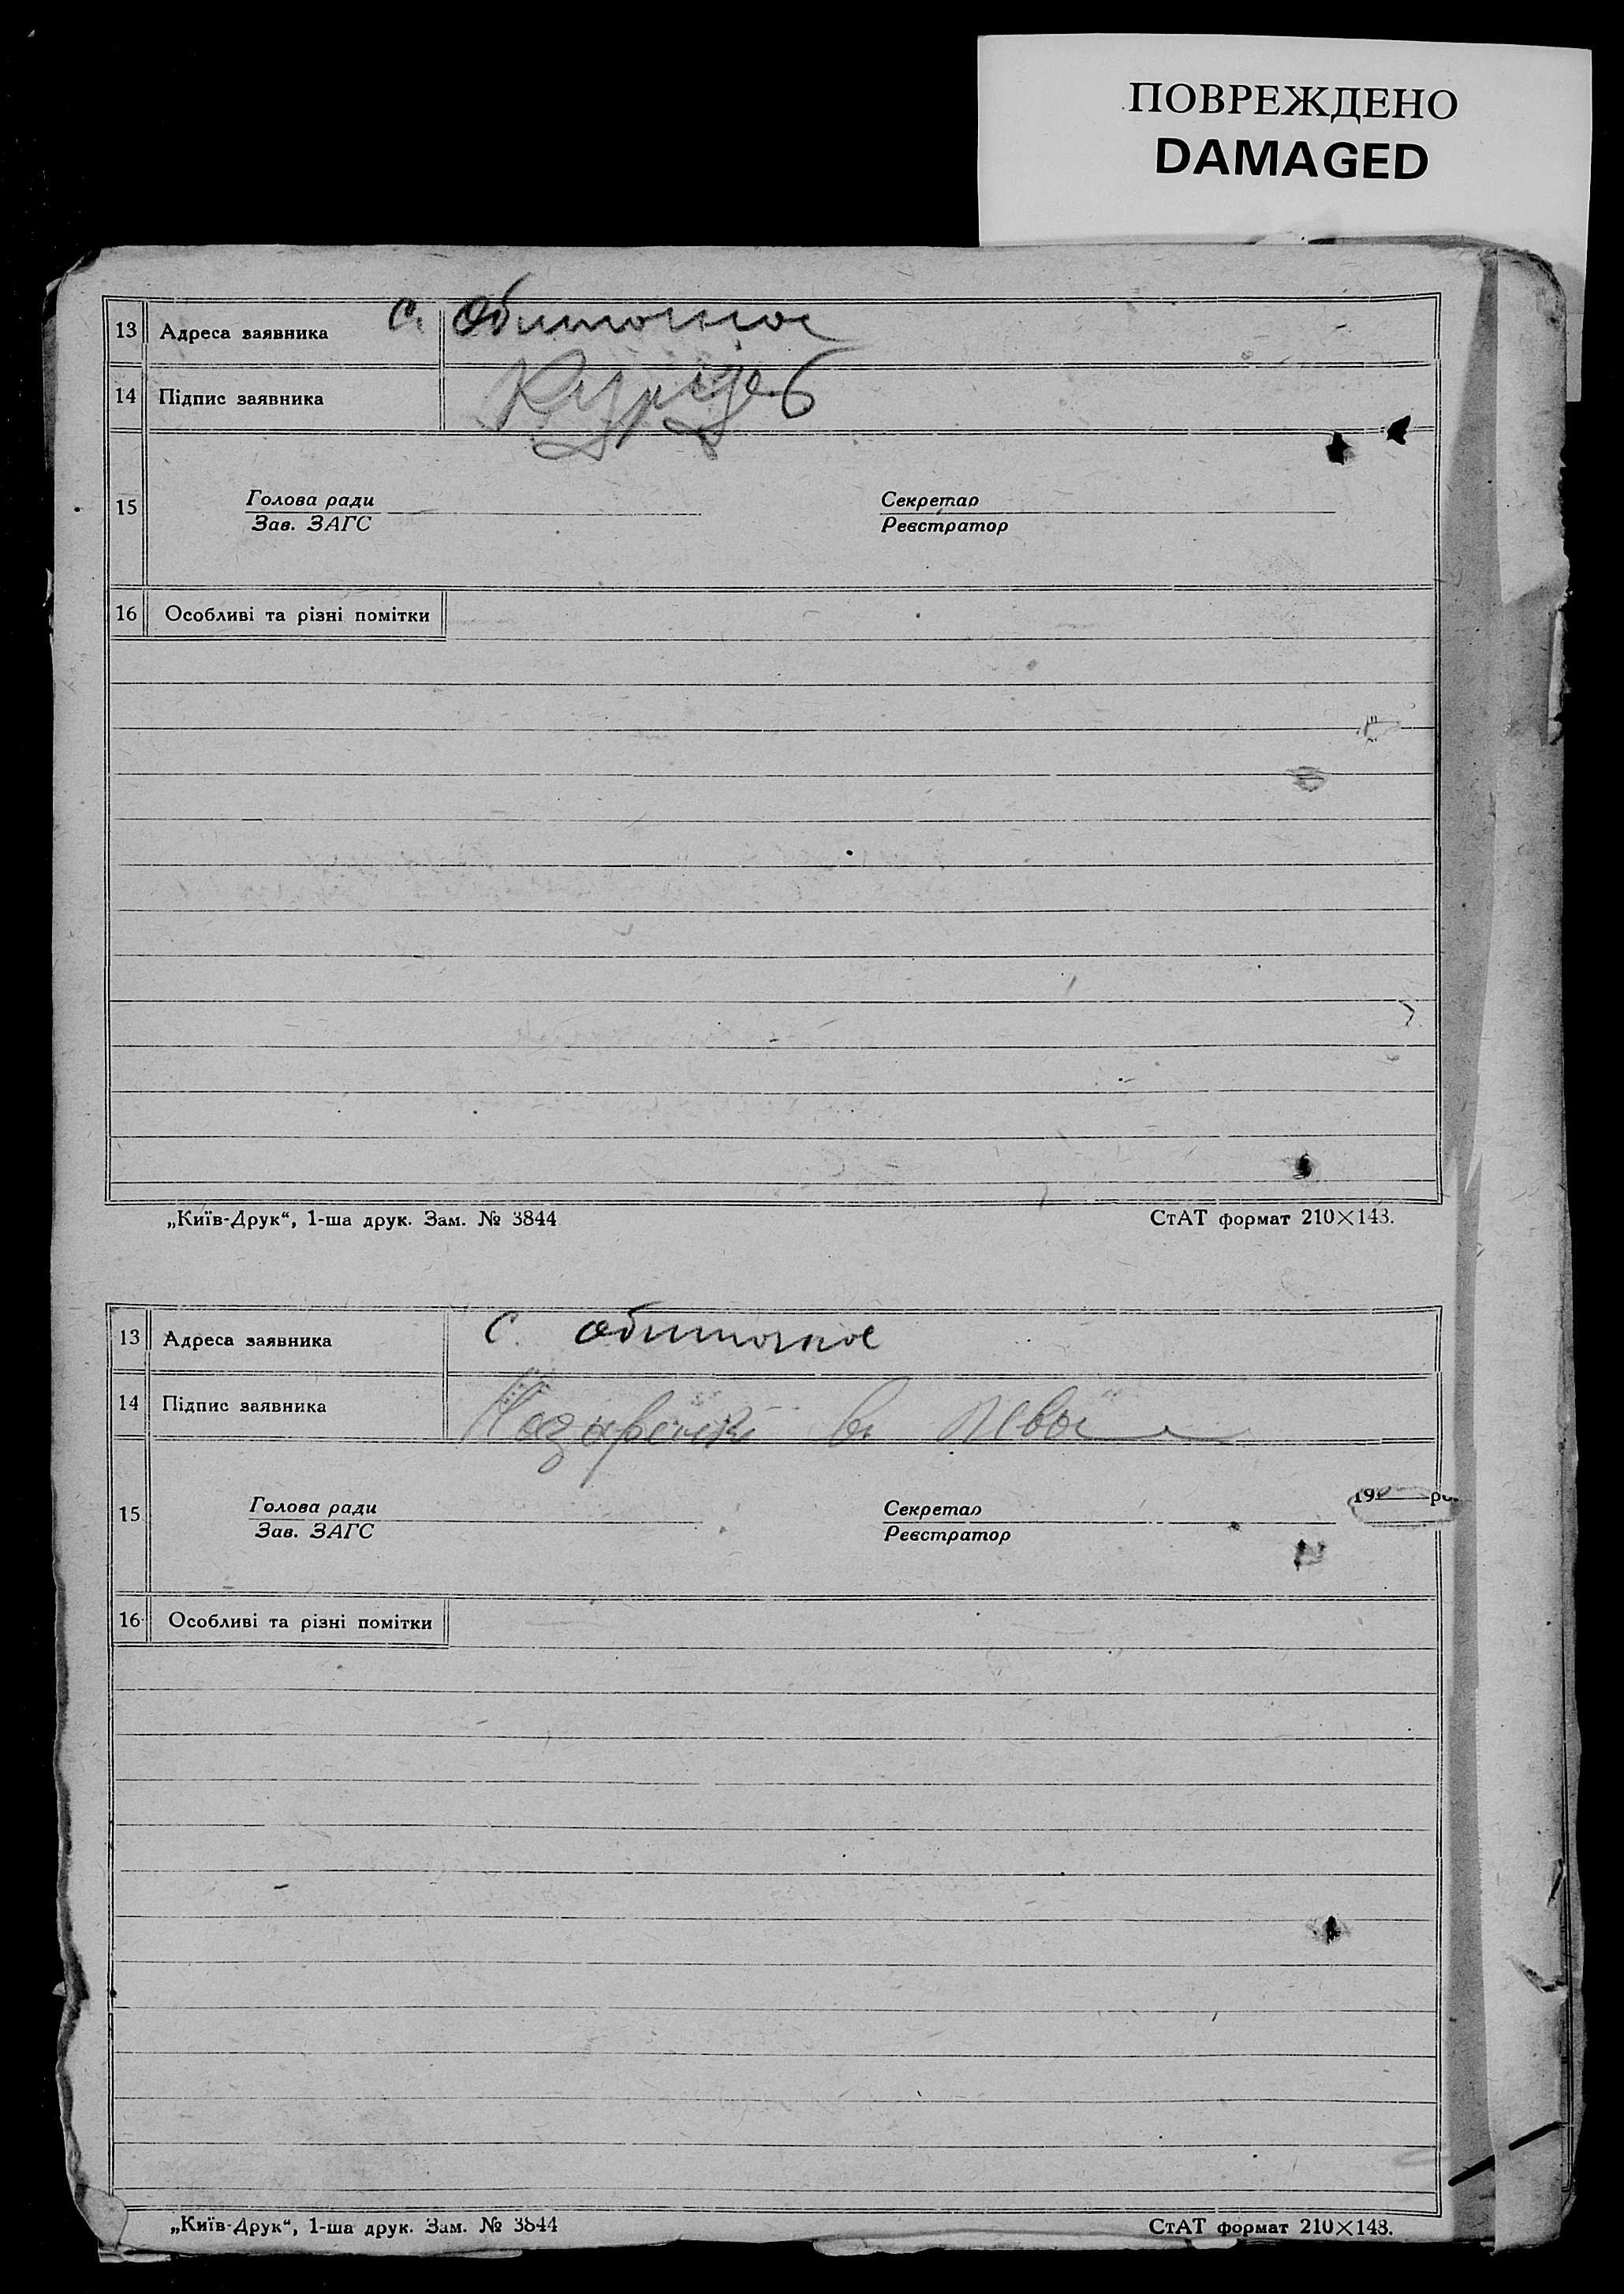 ПОВРЕЖДЕНО
DAMAGED
13 Адреса заявника с.
14 Підпис заявника
15 Голова ради Секретар
Зав. ЗАГС Реєстратор
16 Особливі та різні помітки
„Київ-Друк“, 1-ша друк. Зам. № 3844 СтАТ формат 210×148.
13 Адреса заявника с.
14 Підпис заявника
19 
15 Голова ради Секретар
Зав. ЗАГС Реєстратор
16 Особливі та різні помітки
„Київ-Друк“, 1-ша друк. Зам. № 3844 СтАТ формат 210×148.